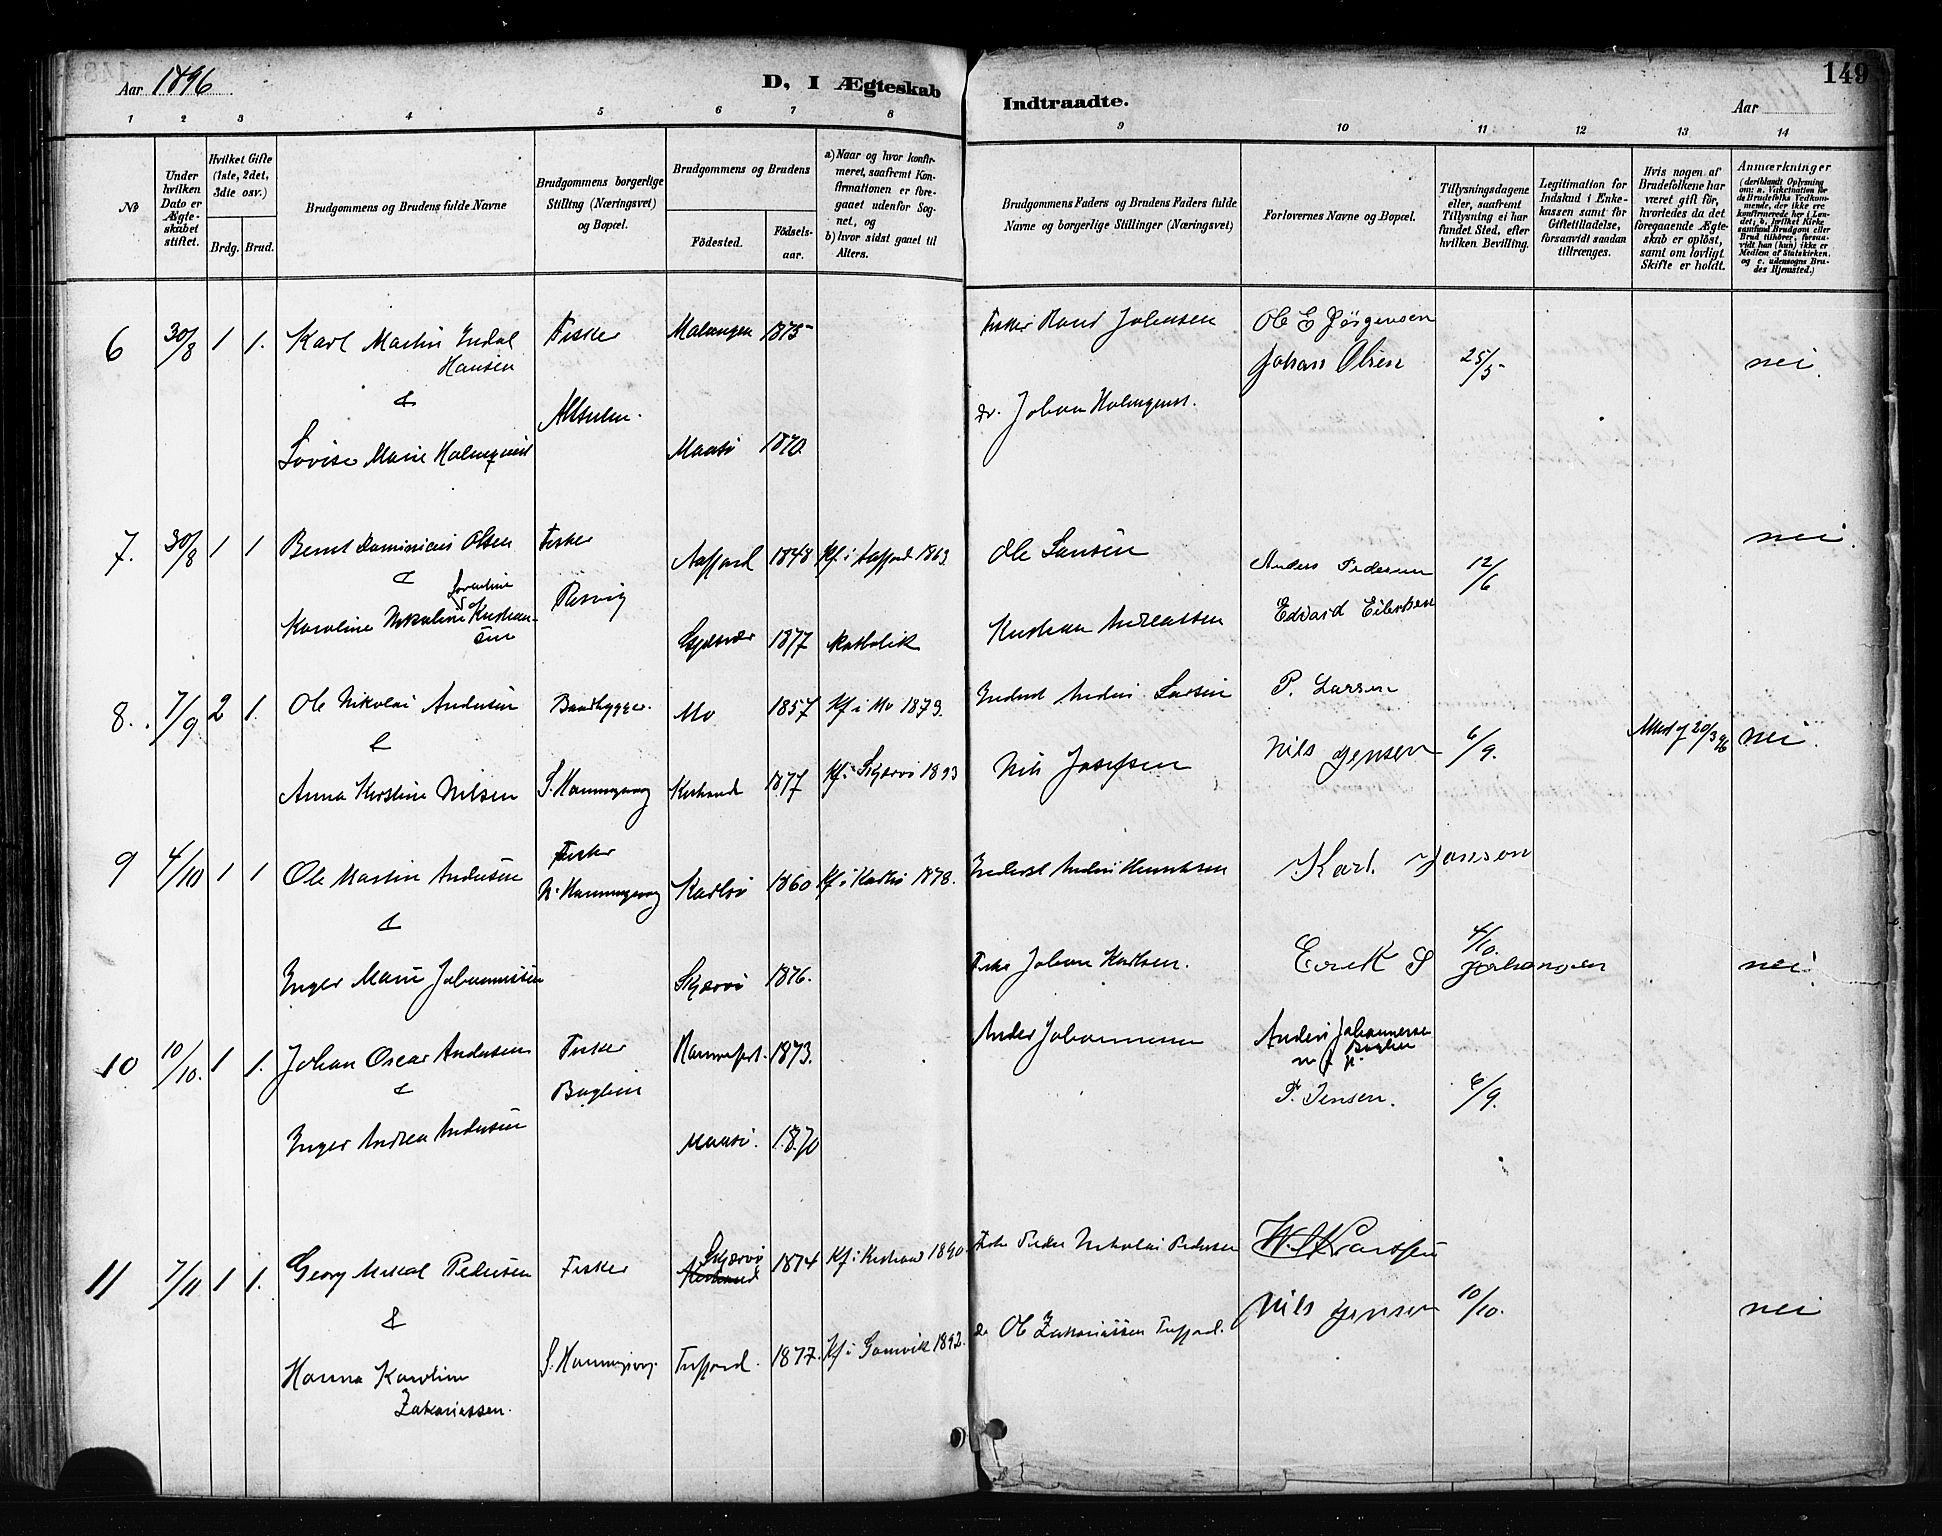 Aar 1896
D, I Ægteskab
Indtraadte.
Aar
149
1 2 3 4 5 6 7 8 9 10 11 12 13 14
No
Under hvilken Dato er Ægteskabet stiftet.
Hvilket Gifte (1ste, 2det, 3die osv.)
Brdg. Brud.
Brudgommens og Brudens fulde Navne
Brudgommens borgerlige Stilling (Næringsvei) og Bopæl.
Brudgommens og Brudens
Födested. Födsels-aar.
a) Naar og hvor konfirmeret, saafremt Konfirmationen er foregaaet udenfor Sognet, og
b) hvor sidst gaaet til Alters.
Brudgommens Faders og Brudens Faders fulde Navne og borgerlige Stillinger (Næringsvei)
Forlovernes Navne og Bopæl.
Tillysningsdagene eller, saafremt Tillysning ei har fundet Sted, efter hvilken Bevilling.
Legitimation for Indskud i Enkekassen samt for Giftetilladelse, forsaavidt saadan tiltrænges.
Hvis nogen af Brudefolkene har været gift för, hvorledes da det foregaaende Ægteskab er oplöst, samt om lovligt Skifte er holdt.
Anmærkninger
(deriblandt Oplysning om: a. Vakcination for de Brudefolks Vedkommende, der ikke ere konfirmerede her i Landet; b. hvilket Kirkesamfund Brudgom eller Brud tilhörer, forsaavidt han (hun) ikke er Medlem af Statskirken, og c. udensogns Brudes Hjemsted.)
6 30/8 1 1. Karl Martin Indal Hansen Fisker Malangen 1875 Ole E Jörgensen
Johan Olsen 25/5 nei.
&
Lovise Marie Holmqvist Maasö 1870. Johan Holmqvist.
7. 30/8 1 1 Bernt Dominicus Olsen Fisker Aafjord 1848 Kf. i Aafjord 1863. Ole Larsen Anders Pedersen 12/6 nei.
&
Karoline Nikoline Kristiansen 1877 katholik Kristian Andreassen Edvard Eilertsen
8. 7/9 2 1. Ole Nikolai Andersen Baadbygger. Mo 1857 Kf. i Mo 1873. Inderst Anders Larsen P. Larsen
&
Anna Kirstine Nilsen S. Honningsvaag Kistrand 1877 Kf. i Skjærvö 1893 Nils Josefsen Nils Jensen 6/9. 20/3 96 nei.
9 4/10 1 1 Ole Martin Andersen Fisker N. Honningsvaag Karlsö 1860 Kf. i Karlsö 1878. Inderst Anders Henriksen Karl Jonson
&
Inger Marie Johannessen Skjærvö 1876. Fisker Johan Karlsen. Erik S Johansen 4/10. nei.
10 10/10. 1 1. Johan Oscar Andersen Fisker Hammerfest. 1873. Anders Johannessen Anders Johannessen
m. f. p.
&
Inger Andrea Andersen Maasö. 1870 P. Jensen. 6/9.
11 7/11 1 1. Georg Mikal Pedersen Fisker Skjærvö Kistrand 1874 Kf. i Kistrand 1890. Fisker Peder Nikolai Pedersen
&
Hanna Karoline Zakariassen. S. Honningsvaag. Tufjord. 1877. Kf. i Gamvik 1892. do Ole Zakariassen Tufjord. Nils Jensen 10/10. nei